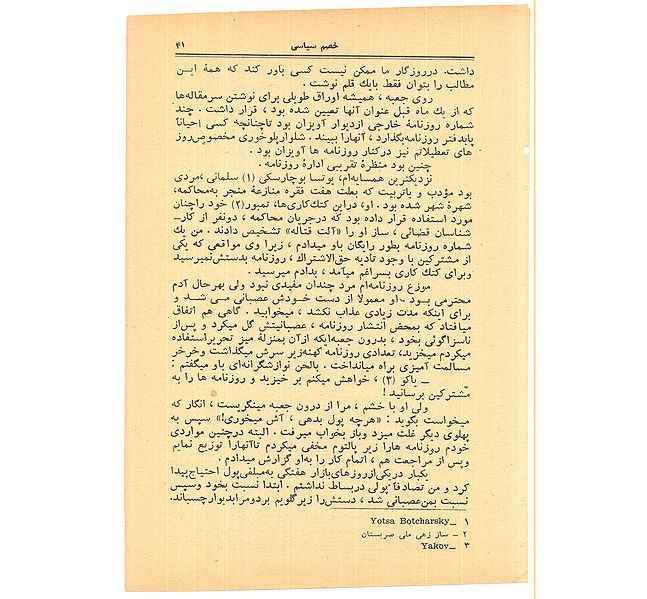 خصم سیاسی ۴۱
داشت. درروزگار ما ممکن نیست کسی باور کند که همهٔ این
مطالب را بتوان فقط بایك قلم نوشت .
روی جعبه ، همیشه اوراق طویلی برای نوشتن سرمقاله‌ها
که از یك ماه قبل عنوان آنها تعیین شده بود ، قرار داشت . چند
شماره روزنامهٔ خارجی ازدیوار آویزان بود تاچنانچه کسی احیاناً
پابدفتر روزنامه‌بگذارد ، آنهارا ببیند . شلوارپلوخوری مخصوص‌روز
های تعطیلاتم نیز درکنار روزنامه ها آویزان بود .
چنین بود منظرهٔ تقریبی ادارهٔ روزنامه .
نزدیکترین همسایه‌ام، یوتسا بوچارسکی (۱) سلمانی ،مردی
بود مؤدب و باتربیت که بعلت هفت فقره منازعهٔ منجر به‌محاکمه،
شهرهٔ شهر شده بود . او، دراین کتك‌کاری‌ها، تمبور(۲) خود راچنان
مورد استفاده قرار داده بود که درجریان محاکمه ، دونفر از کار–
شناسان قضائی ، ساز او را «آلت قتاله» تشخیص دادند . من یك
شماره روزنامه بطور رایگان باو میدادم ، زیرا وی مواقعی که یکی
از مشترکین با وجود تادیه حق‌الاشتراك ، روزنامه بدستش‌نمیرسید
وبرای کتك کاری بسراغم میآمد ، بدادم میرسید .
موزع روزنامه‌ام مرد چندان مفیدی نبود ولی بهرحال آدم
محترمی بود . او معمولا از دست خودش عصبانی می شد و
برای اینکه مدت زیادی عذاب نکشد ، میخوابید . گاهی هم اتفاق
میافتاد که بمحض انتشار روزنامه ، عصبانیتش گل میکرد و پس‌از
ناسزاگوئی بخود ، بدرون جعبه‌ایکه ازآن بمنزلهٔ میز تحریراستفاده
میکردم میخزید، تعدادی روزنامه کهنه‌زیر سرش میگذاشت وخرخر
مسالمت آمیزی براه میانداخت . بالحن نوازشگرانه‌ای باو میگفتم :
ــ یاکو (۳) ، خواهش میکنم بر خیزید و روزنامه ها را به
مشترکین برسانید !
ولی او با خشم ، مرا از درون جعبه مینگریست ، انگار که
میخواست بگوید : «هرچه پول بدهی ، آش میخوری!» سپس به
پهلوی دیگر غلت میزد وباز بخواب میرفت . البته درچنین مواردی
خودم روزنامه هارا زیر پالتوم مخفی میکردم تاآنهارا توزیع نمایم
وپس از مراجعت هم ، اتمام کار را به‌او گزارش میدادم .
یکبار دریکی‌ازروزهای‌بازار هفتگی به‌مبلغی‌پول احتیاج‌پیدا
کرد و من تصادفاً پولی دربساط نداشتم . ابتدا نسبت بخود وسپس
نسبت بمن‌عصبانی شد ، دستش‌را زیرگلویم بردومرابدیوارچسباند.
۱ ــ Yotsa Botcharsky
۲ – ساز زهی ملی صربستان
۳ ــ Yakov